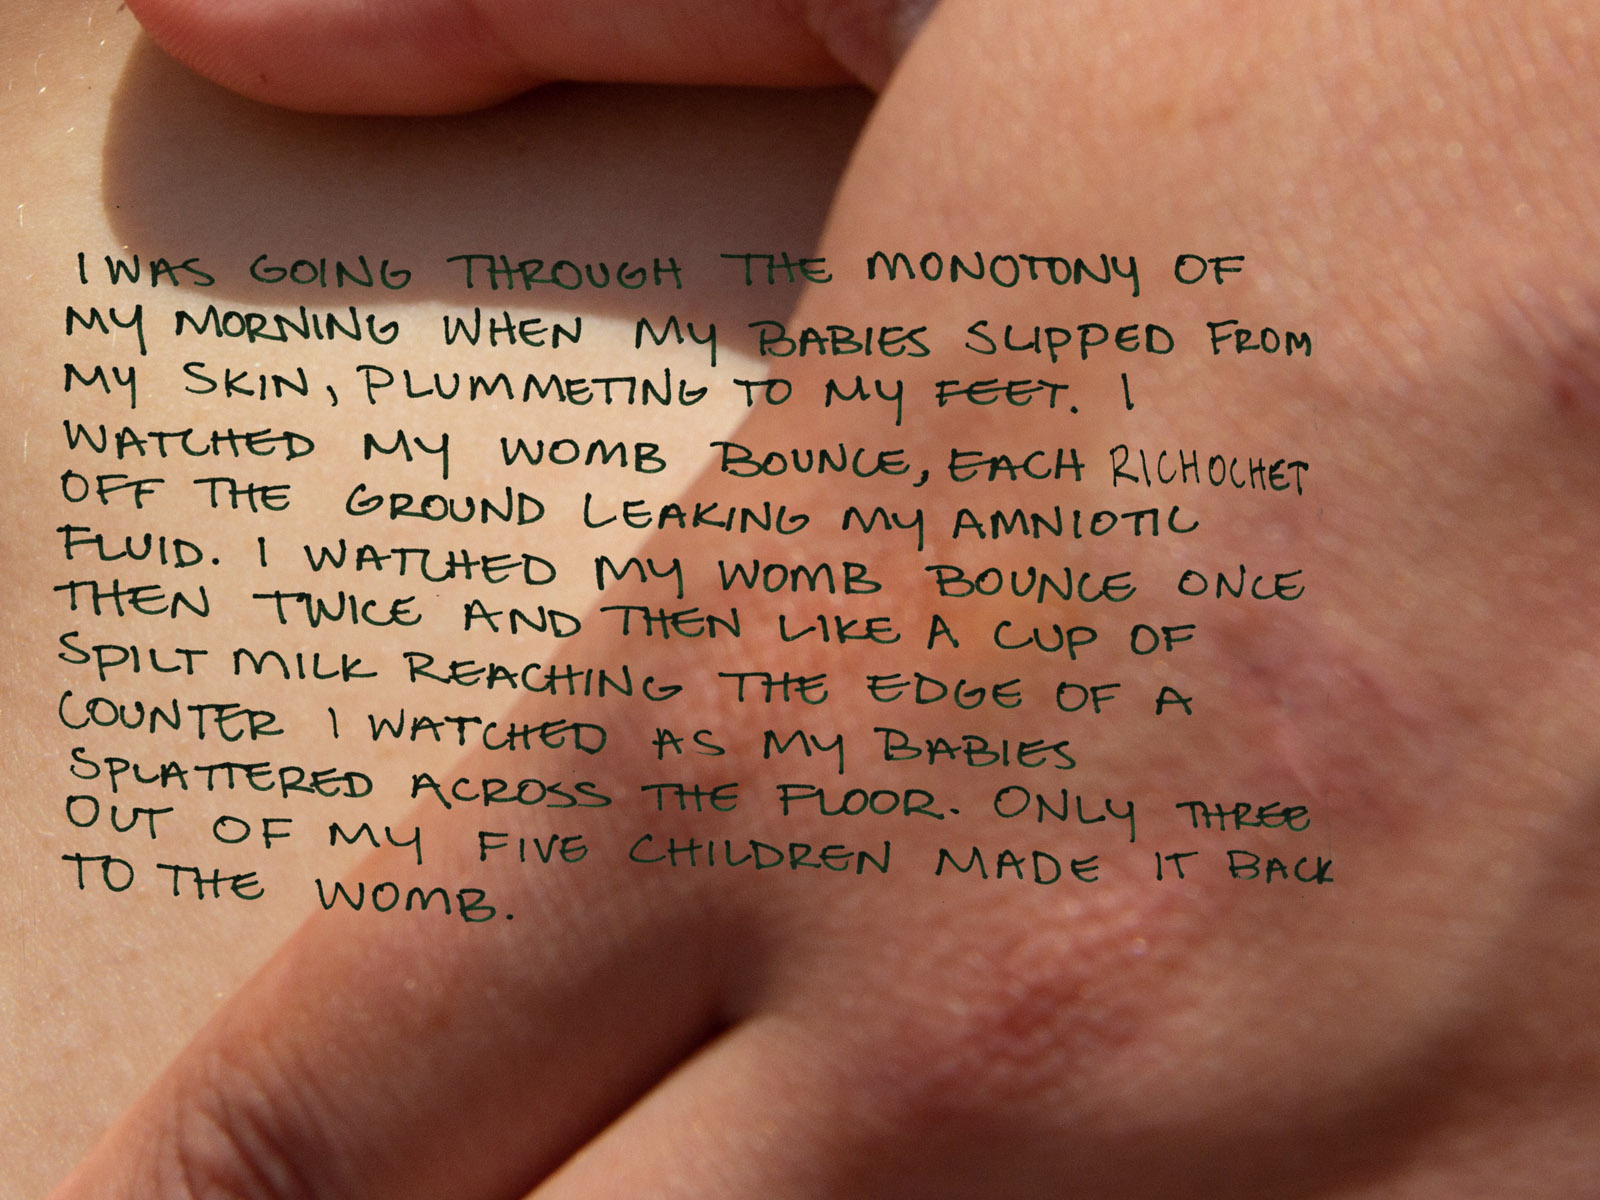 I WAS GOING THROUGH THE MONOTONY OF
MY MORNING WHEN MY BABIES SLIPPED FROM
MY SKIN, PLUMMETING TO MY FEET. I
WATCHED MY WOMB BOUNCE, EACH RICHOCHET
OFF THE GROUND LEAKING MY AMNIOTIC
FLUID. I WATCHED MY WOMB BOUNCE ONCE
THEN TWICE AND THEN LIKE A CUP OF
SPILT MILK REACHING THE EDGE OF A
COUNTER I WATCHED AS MY BABIES
SPLATTERED ACROSS THE FLOOR. ONLY THREE
OUT OF MY FIVE CHILDREN MADE IT BACK
TO THE WOMB.